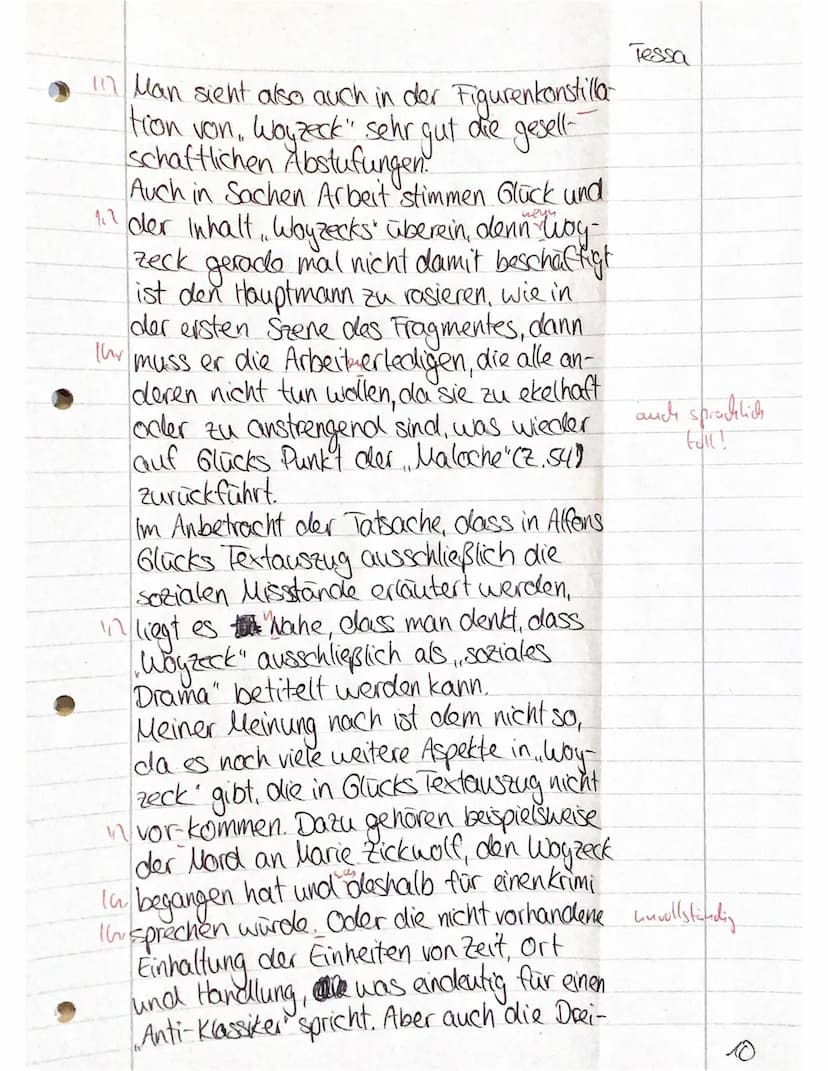 Tessa
Man sieht also auch in der Figurenkonstilla-
tion von „Woyzeck" sehr gut die gesell-
schaftlichen Abstufungen.
Auch in Sachen Arbeit stimmen Glück und
der Inhalt „Woyzecks' überein, denn wenn Woy-
zeck gerade mal nicht damit beschäftigt
ist den Hauptmann zu rasieren, wie in
der ersten Szene des Fragmentes, dann
muss er die Arbeit erledigen, die alle an-
deren nicht tun wollen, da sie zu ekelhaft
oder zu anstrengend sind, was wieder
auf Glücks Punkt der „Maloche" (Z. 54)
zurückführt.
auch sprachlich
toll!
Im Anbetracht der Tatsache, dass in Alfons
Glücks Textauszug ausschließlich die
sozialen Misstände erläutert werden,
liegt es Nahe, dass man denkt, dass
„Woyzeck" ausschließlich als „soziales
Drama" betitelt werden kann.
Meiner Meinung nach ist dem nicht so,
da es noch viele weitere Aspekte in „Woy-
zeck' gibt, die in Glücks Textauszug nicht
vor-kommen. Dazu gehören beispielsweise
der Mord an Marie Zickwolf, den Woyzeck
begangen hat und was deshalb für einen Krimi
sprechen würde. Oder die nicht vorhandene
unvollständig
Einhaltung der Einheiten von Zeit, Ort
und Handlung, was eindeutig für einen
„Anti-Klassiker" spricht. Aber auch die Drei-
10